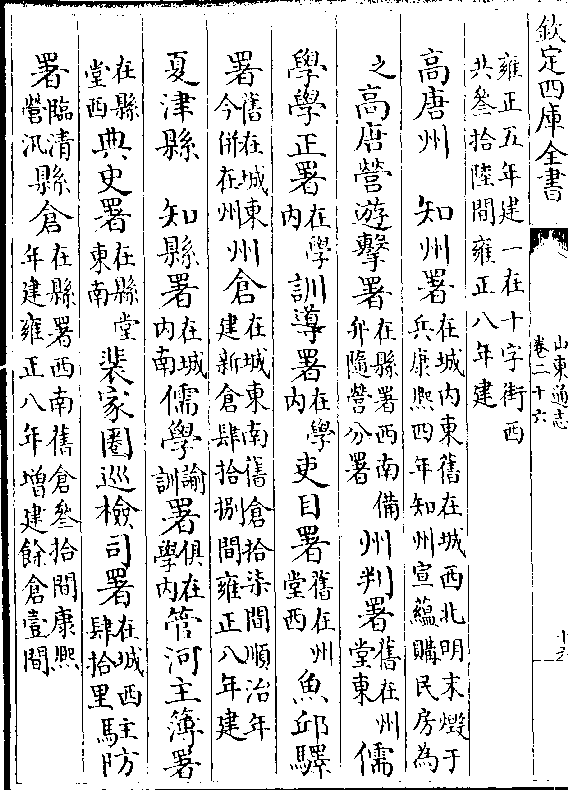 欽定四庫全書
山東通志
卷二十六
雍正五年建一在十字街西
共叁拾陸間雍正八年建
高唐州 知州署在城内東舊在城西北明末燬于
兵康熙四年知州宣蘊購民房為
之高唐營遊擊署在縣署西南備
弁隨營分署州判署舊在州
堂東儒
學學正署在學
内訓導署在學
内吏目署舊在州
堂西魚邱驛
署舊在城東
今併在州州倉在城東南舊倉拾柒間順治年
建新倉肆拾捌間雍正八年建
夏津縣 知縣署在城
内南儒學諭
訓署俱在
學内管河主簿署
在縣
堂西典史署在縣堂
東南裴家圈巡檢司署在城西主防
肆拾里馬防
署臨清
營汛縣倉在縣署西南舊倉叁拾間康熙
年建雍正八年增建餘倉壹間